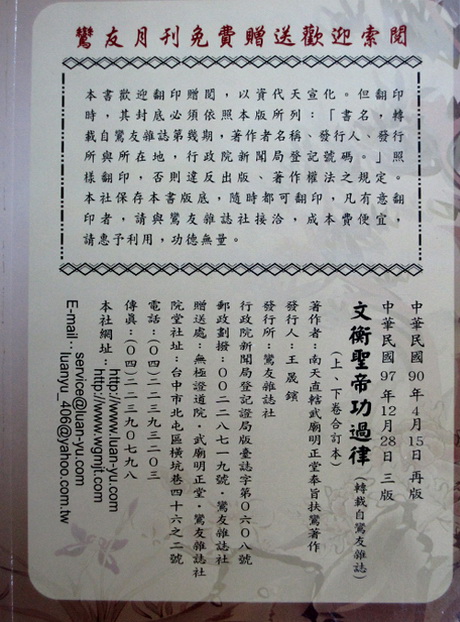 鸞友月刊免費贈送歡迎索閱
本書歡迎翻印贈閱，以資代天宣化。但翻印
時，其封底必須依照本版所列：「書名，轉
載自鸞友雜誌第幾期，著作者名稱、發行人、發行
所與所在地，行政院新聞局登記號碼。」照
樣翻印，否則違反出版、著作權法之規定。
本社保存本書版底，隨時都可翻印，凡有意翻
印者，請與鸞友雜誌社接洽，成本費便宜，
請惠予利用，功德無量。
中華民國90年4月15日 再版
中華民國97年12月28日 三版
文衡聖帝功過律（轉載自鸞友雜誌）
（上、下卷合訂本）
著作者：南天直轄武廟明正堂奉旨扶鸞著作
發行人：王晟鑌
發行所：鸞友雜誌社
行政院新聞局登記證局版臺誌字第０６０８號
郵政劃撥：００２２８７１９號·鸞友雜誌社
贈送處：無極證道院·武廟明正堂·鸞友雜誌社
院堂社址：台中市北屯區橫坑巷四十六之二號
電話：（０４）２２３９３２０３
傳真：（０４）２２３９０７９８
本社網址：http://www.luan-yu.com
http://www.wgmjt.com
E-mail：service@luan-yu.com
luanyu_406@yahoo.com.tw